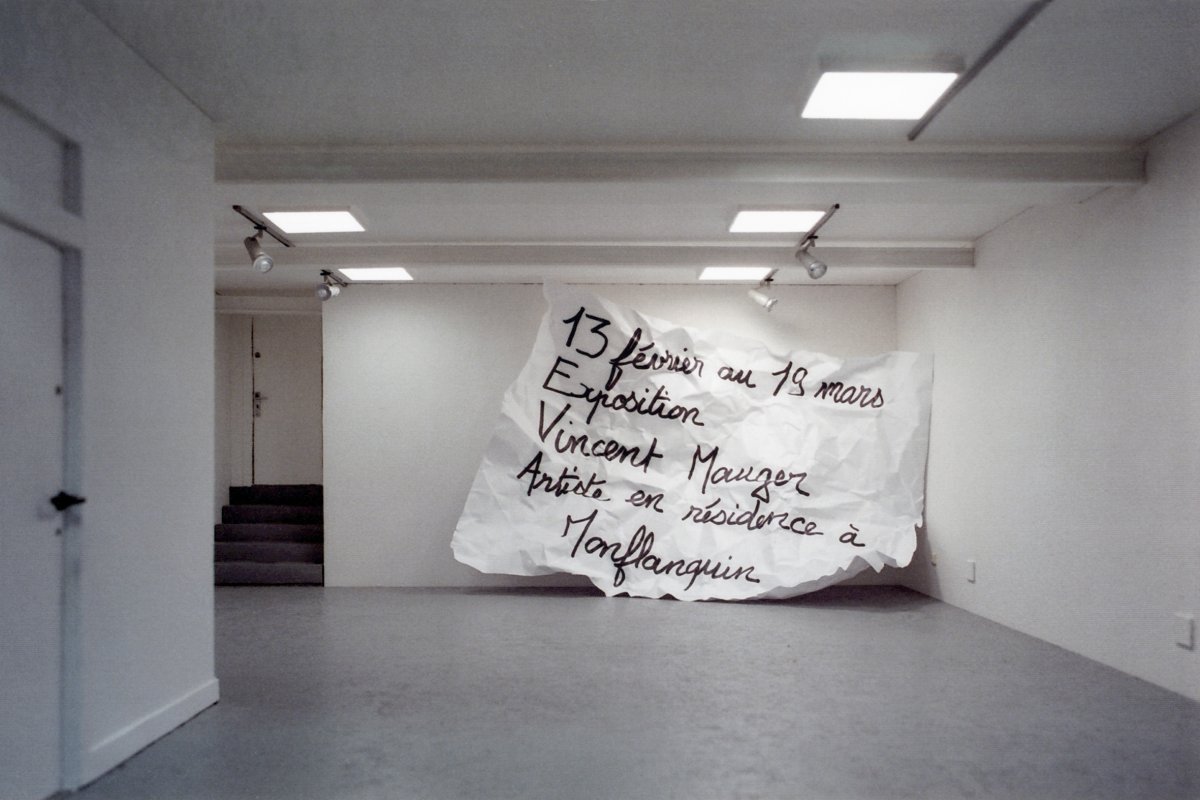 13 février au 19 mars
Exposition
Vincent Mauger
Artiste en résidence à
Monflanquin